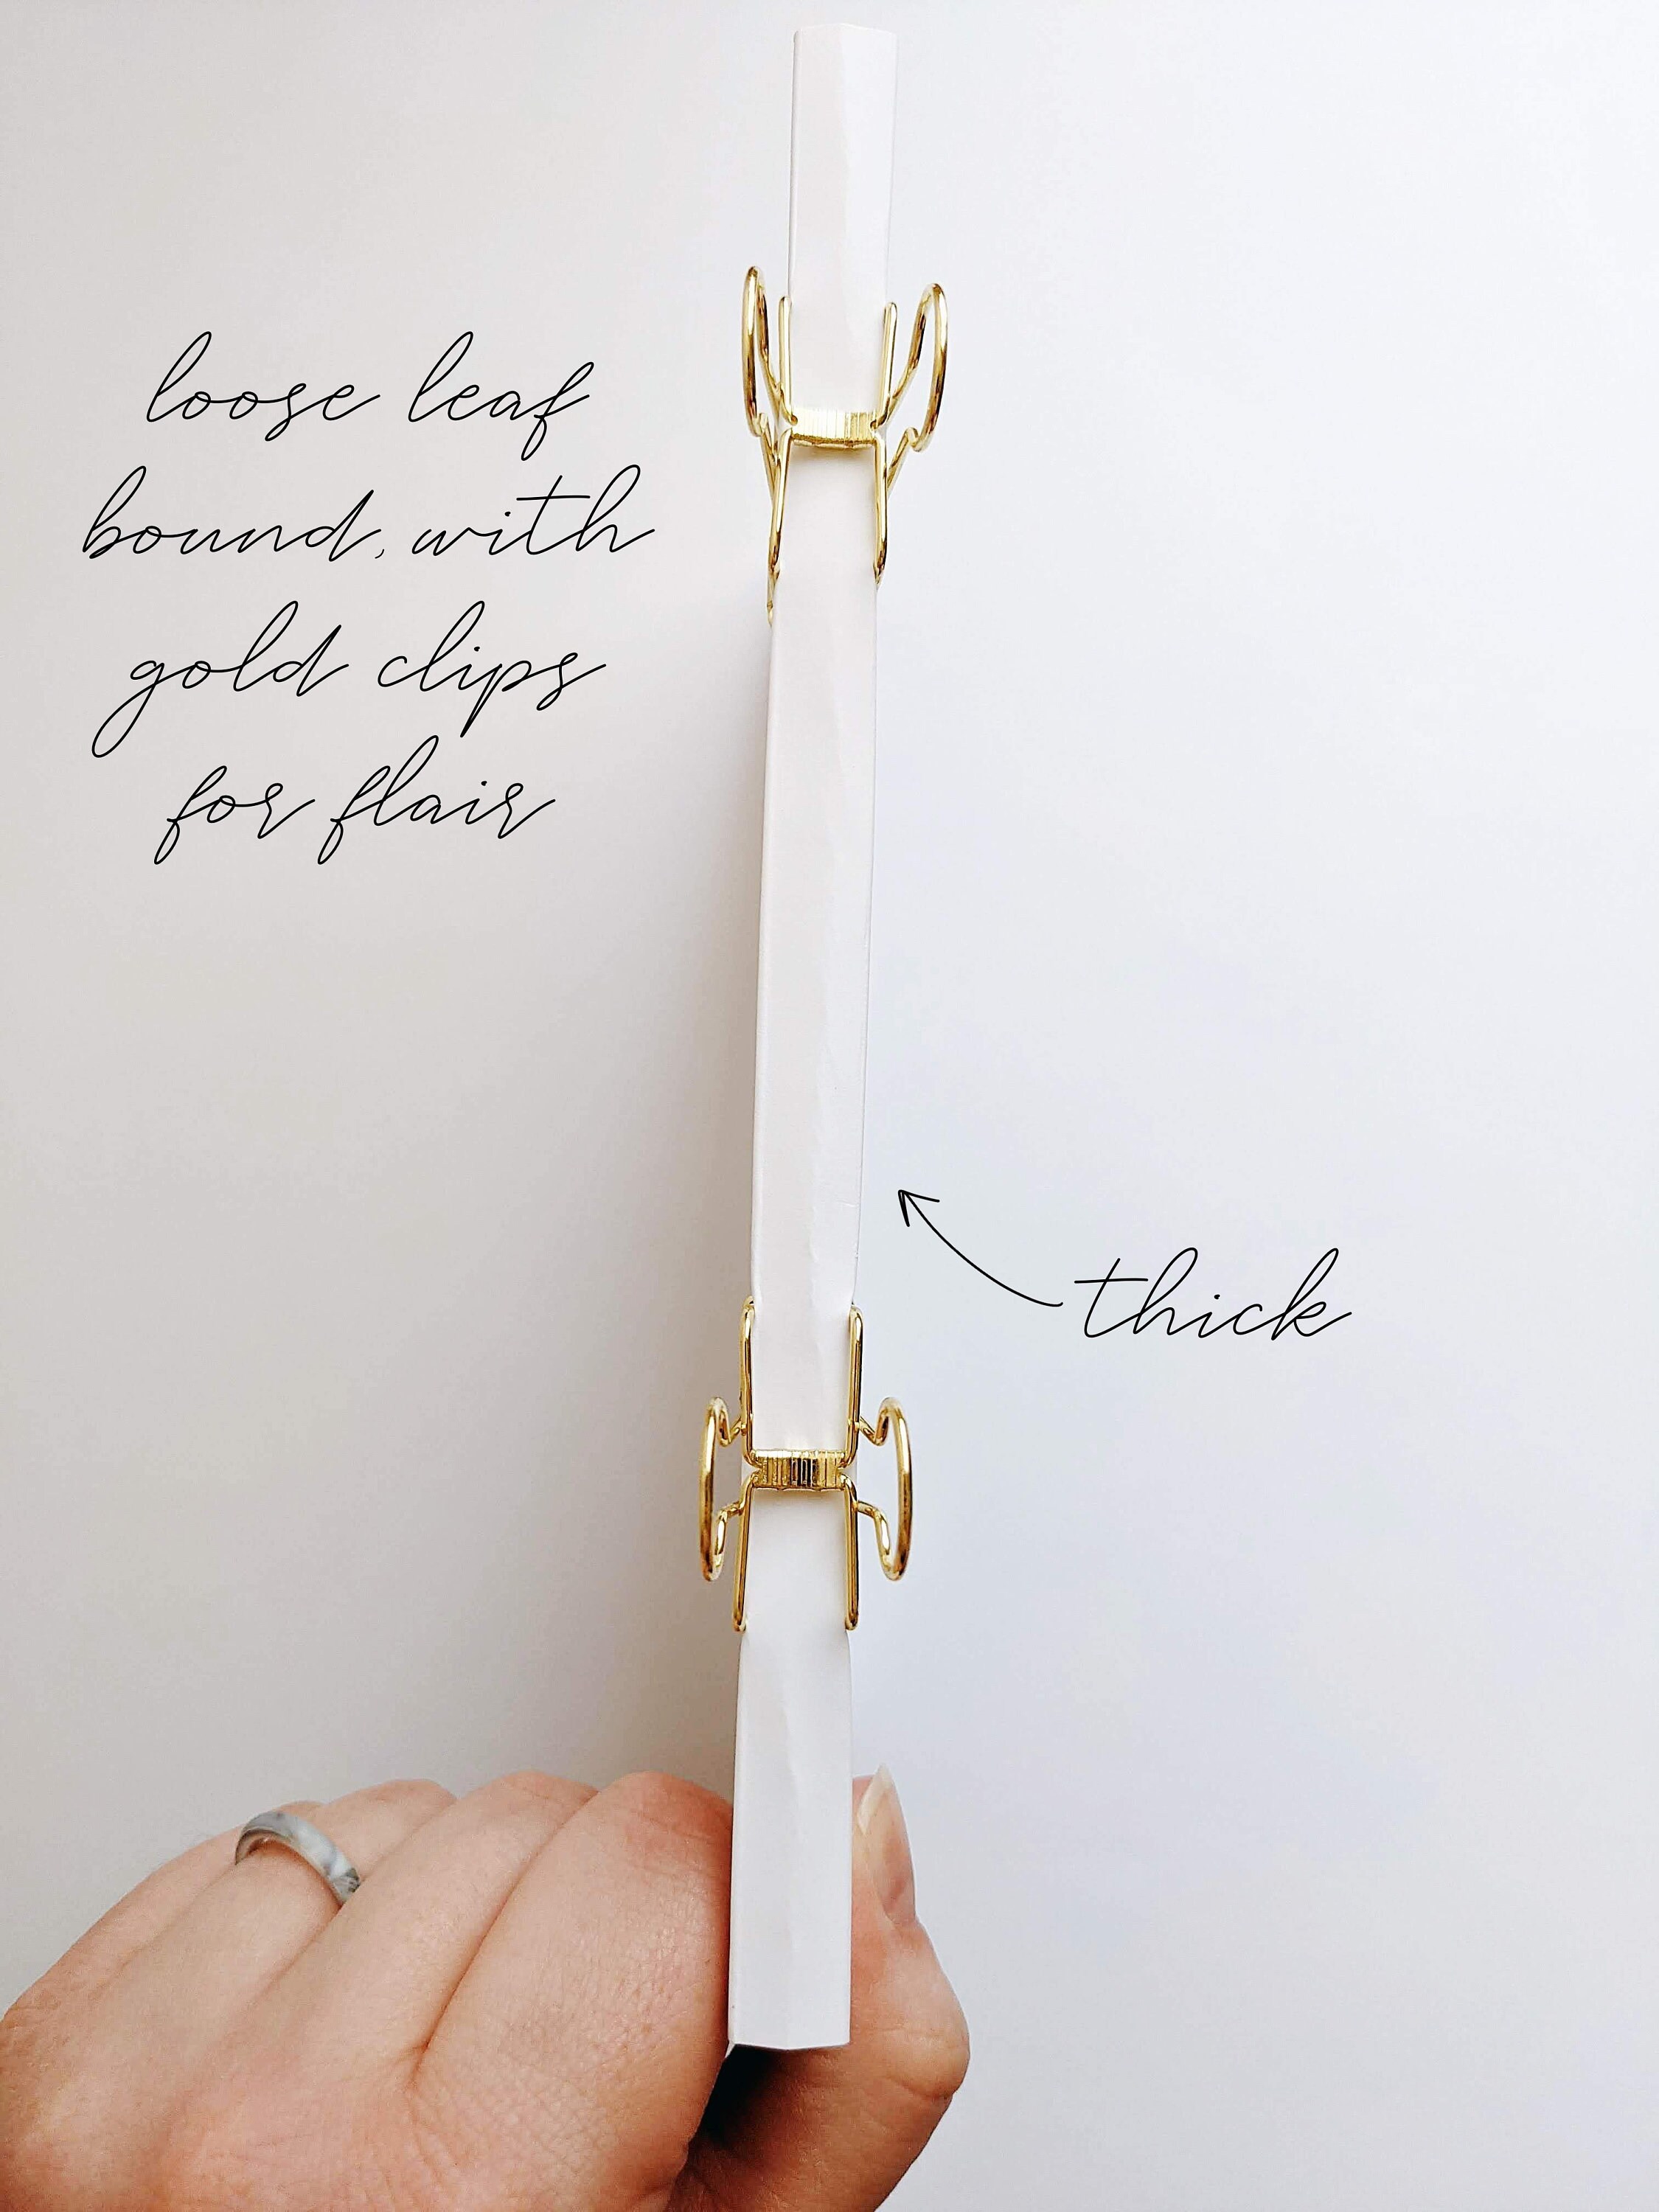 loose leaf
bound, with
gold clips
for flair
thick